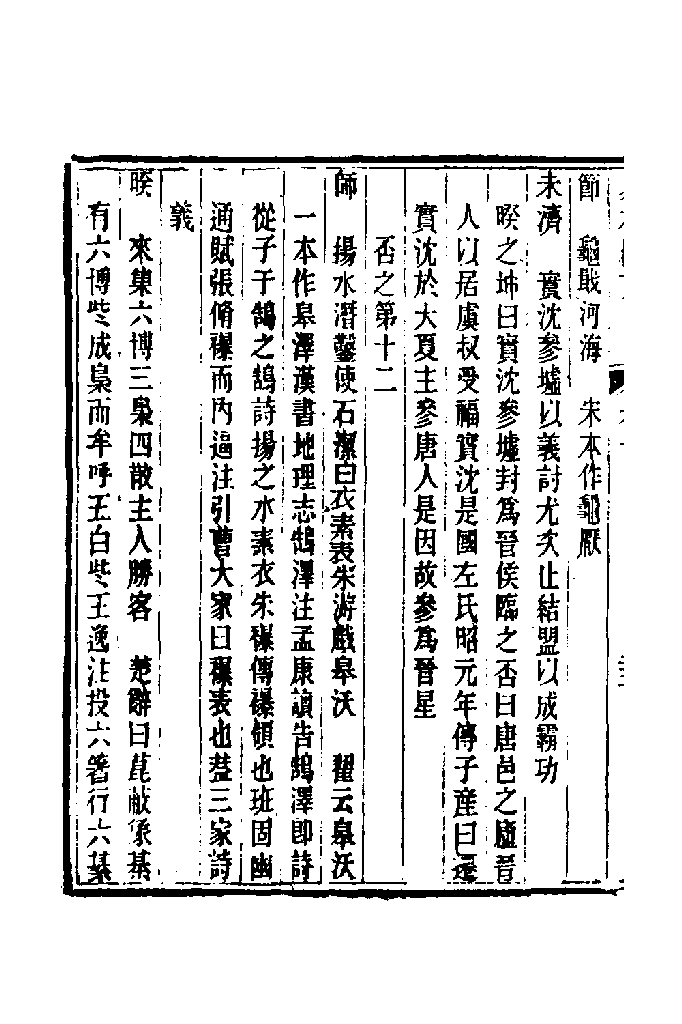 節　龜厭河海　宋本作龜厭
未濟　實沈參墟以義討尤次止結盟以成霸功
睽之坤曰實沈參墟封爲晉侯臨之否曰唐邑之廬晉
人以居虞叔受福實沈是國左氏昭元年傳子產曰遷
實沈於大夏主參唐人是因故參爲晉星
否之第十二
師　揚水潛鑿使石潔白衣素表朱游戲皋沃　翟云皋沃
一本作皋澤漢書地理志鵠澤注孟康讀告鵠澤即詩
從子于鵠之鵠詩揚之水素衣朱襮傳襮領也班固幽
通賦張脩襮而內逼注引曹大家曰襮表也葢三家詩
義
睽　來集六博三梟四散主人勝客　楚辭曰菎蔽象棊
有六博些成梟而牟呼五白些王逸注投六箸行六棊